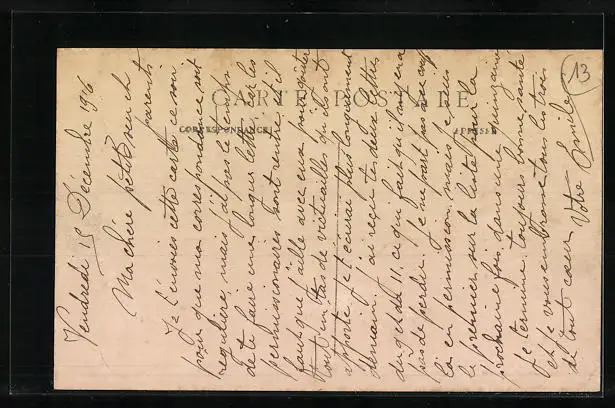 CARTE POSTALE
CORRESPONDANCE
ADRESSE
13
Vendredi 15 Décembre 1916
Ma chère petite sœur et
parents
Je t'envoies cette carte ce soir
pour que ma correspondance soit
regulière, mais j'ai pas le temps
de te faire une longue lettre car les
permissionaires sont rentrés et il
faut que j'aille avec eux pour goûter
tout un tas de victuailles qu'ils ont
apporté je t'écrirai plus longuement
demain. J'ai reçu tes deux lettres
du 9 et du 11. ce qui fait qu'il n'y en a
pas de perdu. Je ne part pas avec
là en permission, mais je suis
le premier sur la liste pour la
prochaine fois dans une quinzaine
Je termine toujours bonne santé
et je vous embrasse tous les trois
de tout cœur Votre Emile